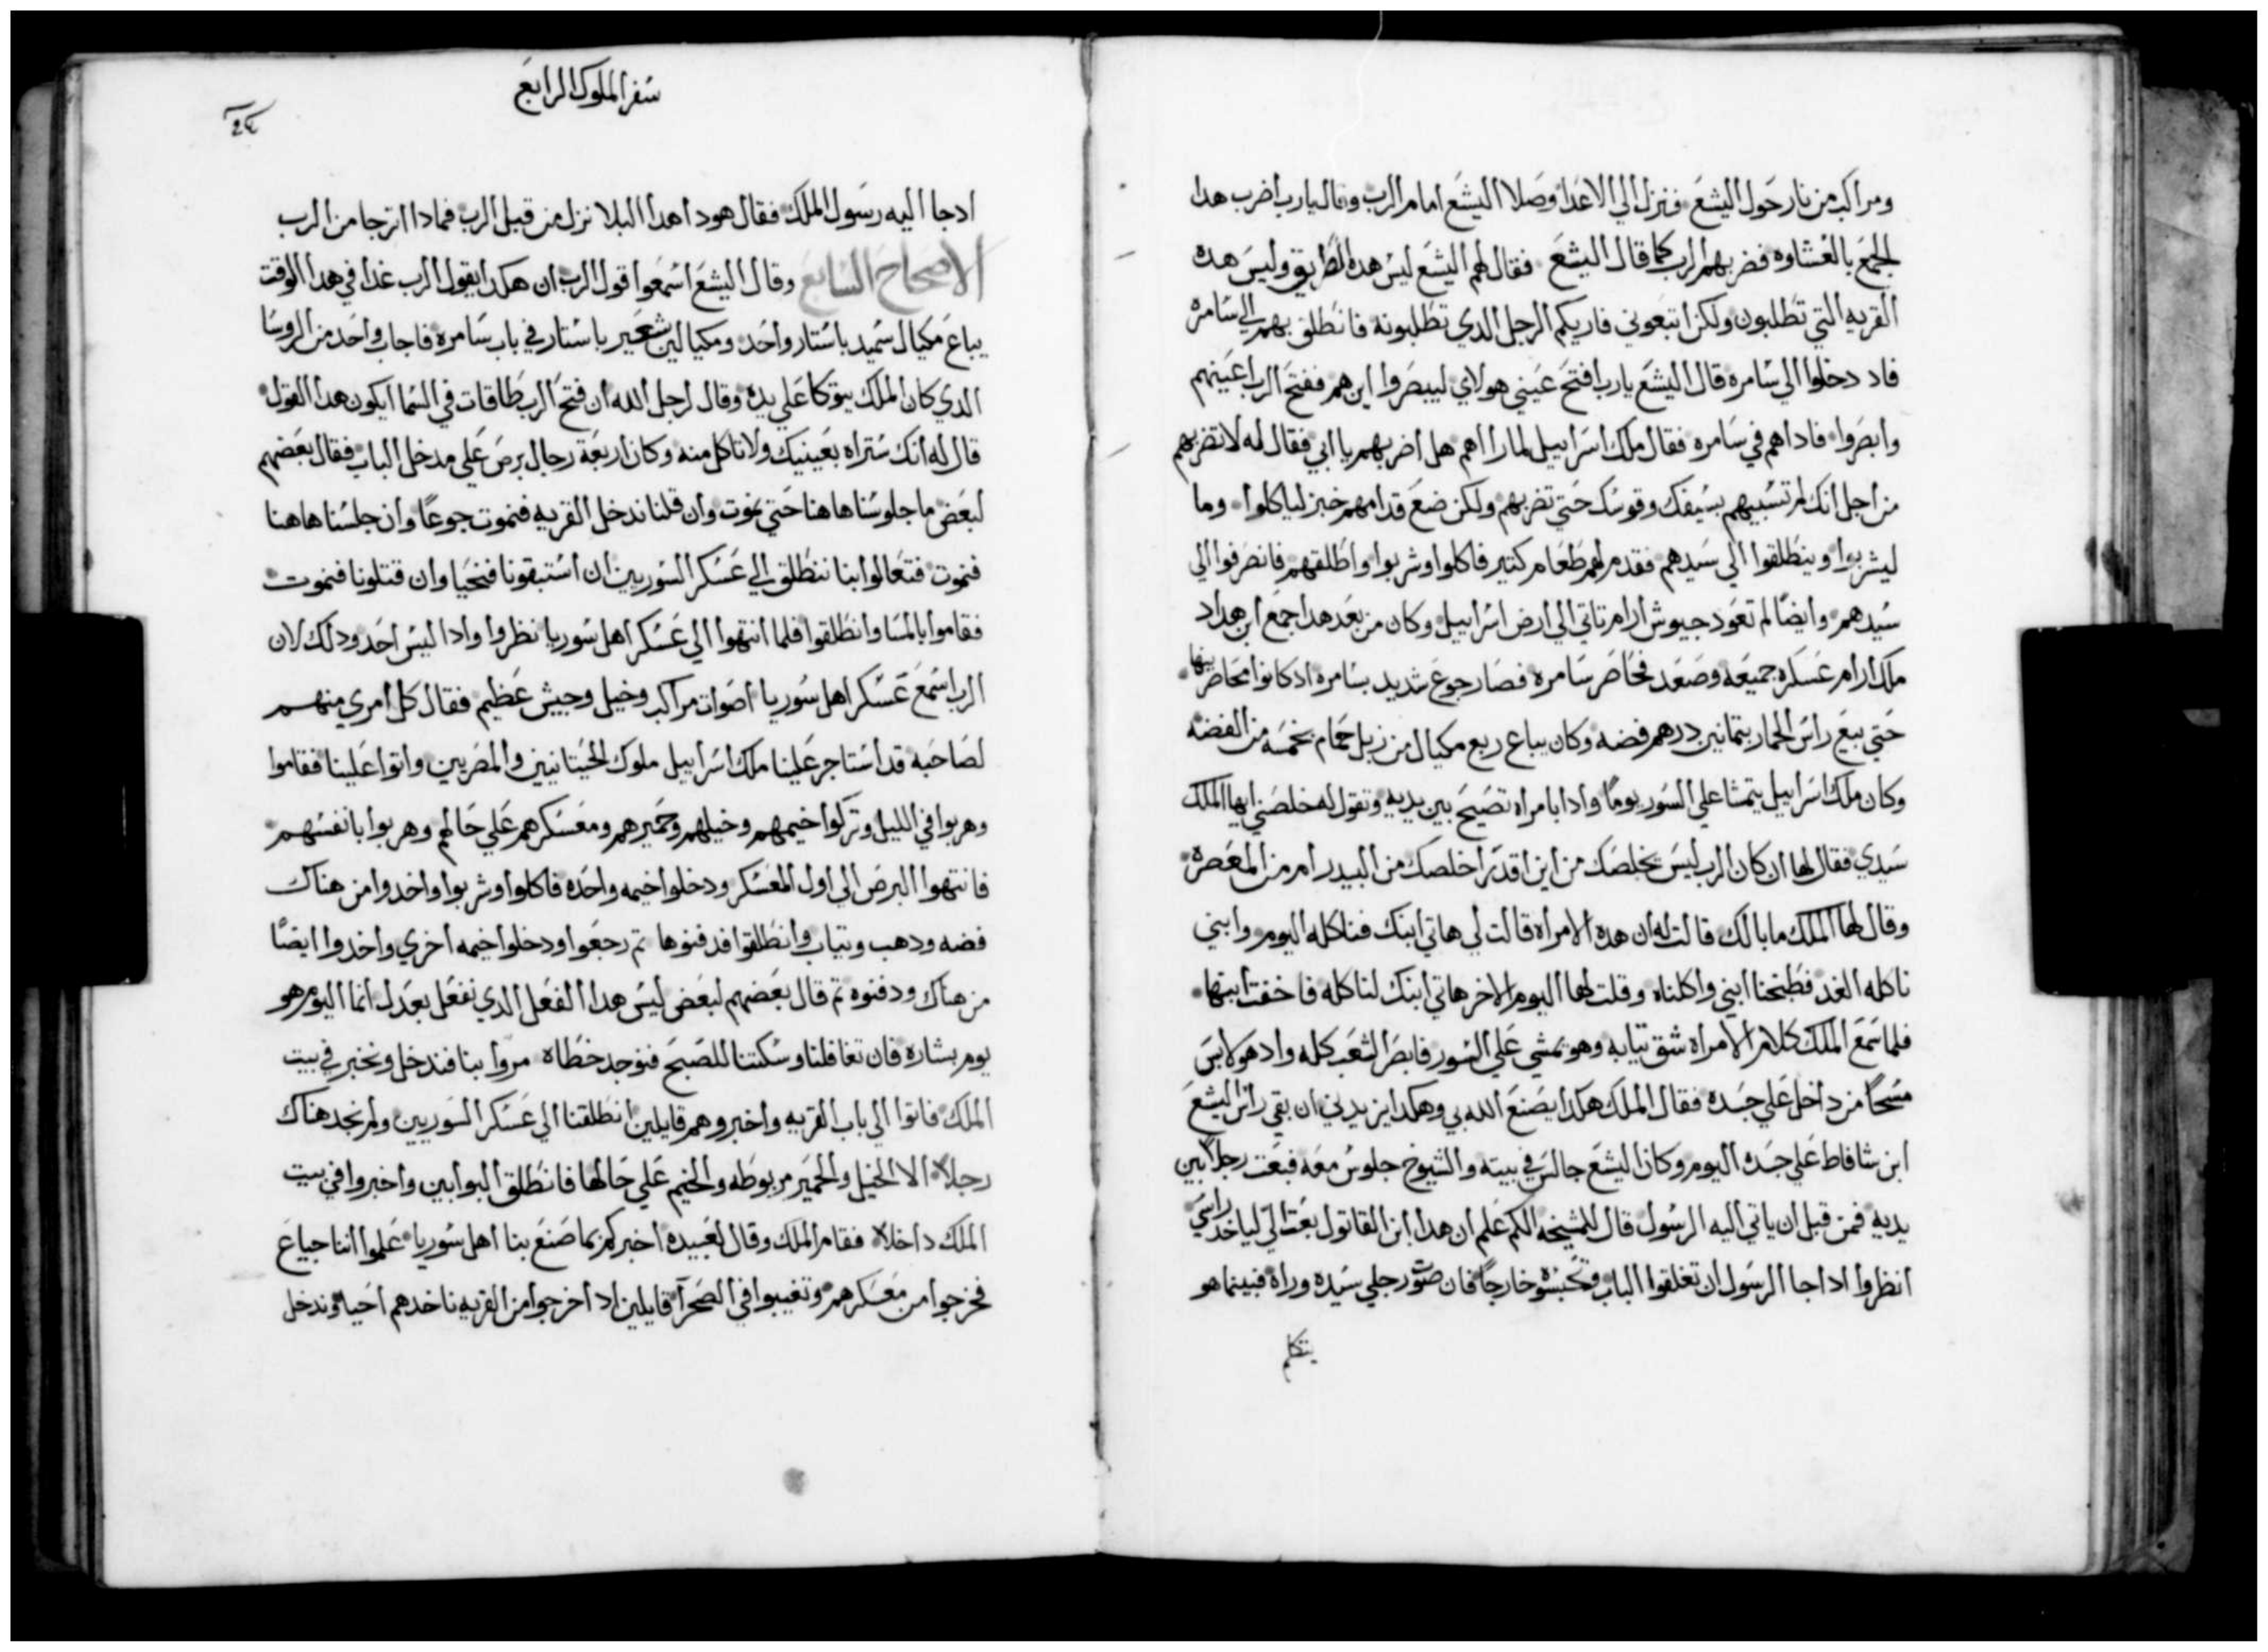 ومراكب من نار حول اليشع فنزل الي الاعدا وصلا اليشع امام الرب وقال يارب اضرب هدا
الجمع بالغشاوه فضربهم الرب كما قال اليشع فقال لهم اليشع ليس هده الطريق وليس هده
القريه التي تطلبون ولكن اتبعوني فاريكم الرجل الدي تطلبونه فانطلق بهم الي سامره
فاد دخلوا الي سامره قال اليشع يارب افتح عيني هولاي ليبصروا اين هم ففتح الرب اعينهم
وابصروا فاداهم في سامره فقال ملك اسراييل لما راهم هل اضربهم يا ابي فقال له لا تضربهم
من اجل انك لم تسبيهم بسيفك وقوسك حتي تضربهم ولكن ضع قدامهم خبز لياكلوا وما
ليشربوا وينطلقوا الي سيدهم فقدم لهم طعام كتير فاكلوا وشربوا واطلقهم فانصرفوا الي
سيدهم وايضا لم تعود جيوش ارام تاتي الي ارض اسراييل وكان من بعد هدا جمع ابن هداد
ملك ارام عسكره جميعه وصعد فحاصر سامره فصار جوع شديد بسامره ادكانوا محاضرينها
حتي بيع راس الحمار بتمانين درهم فضه وكان يباع ربع مكيال من زبل حمام بخمسه من الفضه
وكان ملك اسراييل يتمشا علي السور يوما وادا بامراه تصيح بين يديه وتقول له خلصني ايها الملك
سيدي فقال لها ان كان الرب ليس يخلصك من اين اقدر اخلصك من البيدر ام من المعصره
وقال لها الملك ما بالك قالت له ان هده الامراه قالت لي هاتي ابنك فناكله اليوم وابني
ناكله الغد فطبخنا ابني واكلناه وقلت لها اليوم الاخر هاتي ابنك لناكله فاخفت ابنها
فلما سمع الملك كلام الامراه شق تيابه وهو يمشي علي السور فابصر الشعب كله واد هو لابس
مسحا من داخل علي جسده فقال الملك هكدا يصنع الله بي وهكدا يزيدني ان بقي راس اليشع
ابن شافاط علي جسده اليوم وكان اليشع جالس في بيته والشيوخ جلوس معه فبعت رجلا بين
يديه فمن قبل ان ياتي اليه الرسول قال للمشيخه الكم علم ان هدا ابن القاتول بعت الي لياخد راسي
انظروا ادا جا الرسول ان تغلقوا الباب وتحبسوه خارجا فان صوت رجلي سيده وراه فبينما هو
يتكلم
سفر الملوك الرابع
ادجا اليه رسول الملك فقال هودا هدا البلا نزل من قبل الرب فمادا اترجا من الرب
الاصحاح السابع وقال اليشع اسمعوا قول الرب ان هكدا يقول الرب غدا في هدا الوقت
يباع مكيال سميد باستار واحد ومكيالين شعير باستار في باب سامره فاجاب واحد من الروسا
الدي كان الملك يتوكا علي يده وقال لرجل الله ان فتح الرب طاقات في السما ايكون هدا القول
قال له انك ستراه بعينيك ولا تاكل منه وكان اربعة رجال برص علي مدخل الباب فقال بعضهم
لبعض ما جلوسنا هاهنا حتي نموت وان قلنا ندخل القريه فنموت جوعا وان جلسنا هاهنا
فنموت فتعالوا بنا ننطلق الي عسكر السوريين ان استبقونا فنحيا وان قتلونا فنموت
فقاموا بالمسا وانطلقوا فلما انتهوا الي عسكر اهل سوريا نظروا وادا ليس احد ودلك لان
الرب اسمع عسكر اهل سوريا اصوات مراكب وخيل وجيش عظيم فقال كل امري منهم
لصاحبه قد استاجر علينا ملك اسراييل ملوك الحيتانيين والمصريين واتوا علينا فقاموا
وهربوا في الليل وتركوا خيمهم وخيلهم وحميرهم ومعسكرهم علي حالهم وهربوا بانفسهم
فانتهوا البرص الي اول المعسكر ودخلوا خيمه واحده فاكلوا وشربوا واخدوا من هناك
فضه ودهب وتياب وانطلقوا فدفنوها تم رجعوا ودخلوا خيمه اخري واخدوا ايضا
من هناك ودفنوه تم قال بعضهم لبعض ليس هدا الفعل الدي نفعل بعدل انما اليوم هو
يوم بشاره فان تغافلنا وسكتنا للصبح فنوجد خطاه مروا بنا فندخل ونخبر في بيت
الملك فاتوا الي باب القريه واخبروهم قايلين انطلقنا الي عسكر السوريين ولم نجد هناك
رجلا الا الخيل والحمير مربوطه والخيم علي حالها فانطلق البوابين واخبروا في بيت
الملك داخلا فقام الملك وقال لعبيده اخبركم بما صنع بنا اهل سوريا علموا اننا جياع
فخرجوا من معسكرهم وتغيبوا في الصحرا قايلين اد اخرجوا من القريه ناخدهم احيا وندخل